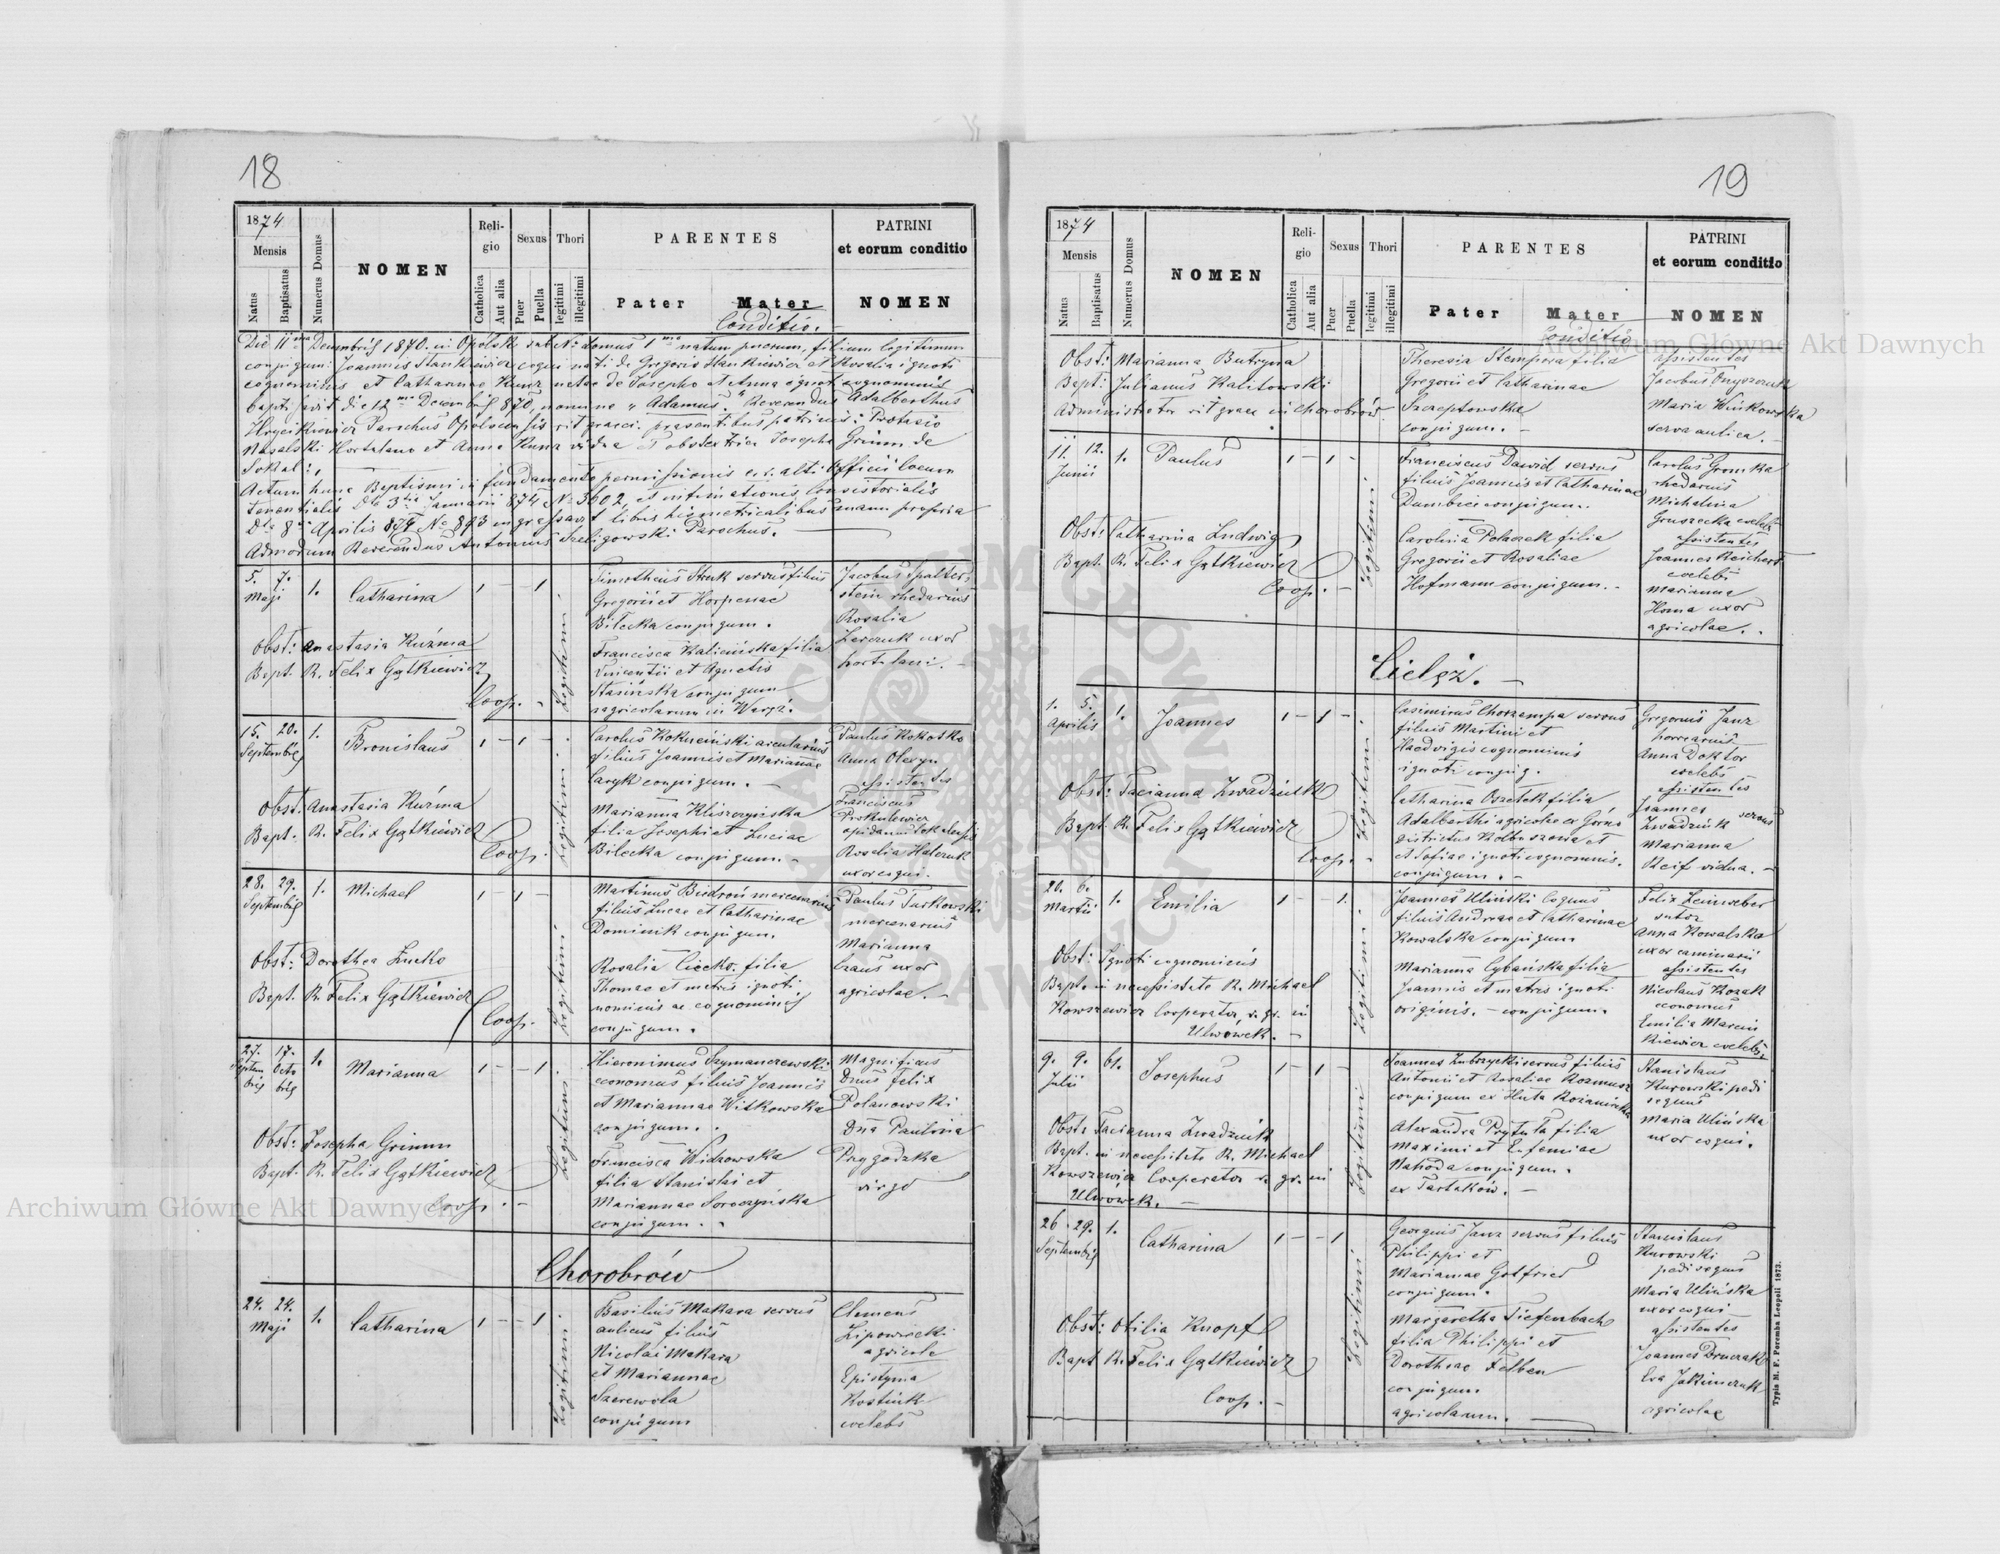 18
1874
Mensis
Natus
Baptisatus
Numerus Domus
NOMEN
Reli-
gio
Catholica
Aut alia
Sexus
Puer
Puella
Thori
legitimi
illegitimi
PARENTES
Pater
Mater
Conditio.
PATRINI
et eorum conditio
NOMEN
Die 11ma Decembris 1870. in Opolsk sub No domus 1mo natum puerum, filium legitimum
conjugum: Joannis Stankiewicz coqui nati de Gregorio Stankiewicz et Rosalia ignoti
cognominis et Catharinae Kunz natae de Josepho et Anna ignoti cognominis
baptisavit die 12ma Decembris 870, nomine "Adamus." Reverendus Adalberthus
Parochus rit graeci. praesentibus patrinis: Protasio
Hortulano et Anna Kunz vidua obstetrice Josepha Grimm de
Sokal:
Actum hunc Baptismi in fundamento permissionis alti Officii Locum
Tenentialis Dto 3tia Januarii 874 No 3602, et intimationis Consistorialis
Dto 8va Aprilis 874 No 893 ingressavit libris metricalibus manu propria
Admodum Reverendus Antonius Szeligowski Parochus.
5. 7.
Maji
1.
Catharina
1 - 1
Legitimi
Timotheus Struk servus filius
Gregorii et Horpenae
Bilecka conjugum.
Francisca Kalicińska filia
Vincentii et Agnetis
Stasińska conjugum
agricolarum in Waręż.
Jacobus Spalten
stein rhedarius
Rosalia
Leszuk uxor
hortulani.
Obst: Anastasia Kuźma
Bapt. R. Felix Gątkiewicz
Coop.
15. 20.
Septembris
1.
Bronislaus
1 - 1 -
Legitimi
Carolus Kokuciński arcularius
filius Joannis et Mariannae
Caryk conjugum.
Marianna Kliszczyńska
filia Josephi et Luciae
Bilecka conjugum.
Paulus Kokosko
Anna Olexyn
assistentes
Franciscus
Proskulewicz
oppidanus Sokalensis
Rosalia Halczuk
uxor coqui.
Obst. Anastasia Kuźma
Bapt. R. Felix Gątkiewicz
Coop.
28. 29.
Septembris
1.
Michael
1 - 1 -
Legitimi
Martinus Biedroń mercenarius
filius Lucae et Catharinae
Dominik conjugum.
Rosalia Ciećko. filia
Thomae et matris ignoti
nominis ac cognominis
conjugum.
Paulus Turkowski
mercenarius
Marianna
Craus uxor
agricolae.
Obst: Dorothea Lucko
Bapt. R. Felix Gątkiewicz
Coop.
27. 17.
Septem Octo
bris bris
1.
Marianna
1 - - 1
Legitimi
Hieronimus Szymanczewski
economus filius Joannis
et Mariannae Witkowska
conjugum.
Francisca Widzowska
filia Stanislai et
Mariannae Soroczyńska
conjugum.
Magnificus
Dnus Felix
Polanowski
Dna Paulina
Przygodzka
virgo
Obst: Josepha Grimm
Bapt: R. Felix Gątkiewicz
Coop.
Chorobrów
24. 24.
Maji
1.
Catharina
1 - - 1
Legitimi
Basilius Makara servus
aulicus filius
Nicolai Makara
et Mariannae
Szerewola
conjugum
Clemens
Lipowiecki
agricola
Epistyma
Kostiuk
coelebs
19
1874
Mensis
Natus
Baptisatus
Numerus Domus
NOMEN
Reli-
gio
Catholica
Aut alia
Sexus
Puer
Puella
Thori
legitimi
illegitimi
PARENTES
Pater
Mater
Conditio
PATRINI
et eorum conditio
NOMEN
Obst: Marianna Butryna
Bapt: Julianus Kalitowski
Administrator rit graec in Chorobrów.
Theresia Stempora filia
Gregorii et Catharinae
Szczeptowska
conjugum.
assistentes
Jacobus Onyszczuk
Maria Winkowska
serva aulica.
11. 12.
Junii
1.
Paulus
1 - 1 -
Legitimi
Franciscus Dawid servus
filius Joannis et Catharinae
Dumbici conjugum.
Carolina Polaczek filia
Gregorii et Rosaliae
Hofmann conjugum.
Carolus Gromka
rhedarius
Michalina
Gruszecka coelebs
assistentes
Joannes Reichert
coelebs
Marianna
Homa uxor
agricolae.
Obst: Catharina Ludwig
Bapt. R. Felix Gątkiewicz
Coop.
Cieląż.
1. 5.
Aprilis
1.
Joannes
1 - 1 -
Legitimi
Casimirus Chorzempa servus
filius Martini et
Haedvigis cognominis
ignoti conjug.
Catharina Oszetek filia
Adalberthi agricolae ex Górno
districtus Kolbuszowa et
et Sofiae ignoti cognominis.
conjugum.
Gregorius Janz
horrearius
Anna Doktor
coelebs
assistentes
Joannes
Zwadziuk servus
Marianna
Reif vidua.
Obst: Tacianna Zwadziuk
Bapt. R. Felix Gątkiewicz
Coop.
20. 6.
Martii
1.
Emilia
1 - - 1.
Legitimi
Joannes Uliński Coquus
filius Andreae et Catharinae
Kowalska conjugum
Marianna Cybańska filia
Joannis et matris ignoti
originis. - conjugum.
Felix Leinweber
sutor
Anna Kowalska
uxor caminarii
assistentes
Nicolaus Kozak
economus
Emilia Marcin
kiewicz coelebs.
Obst: Ignoti cognominis
Bapt. in necessitate R. Michael
Kowszewicz Cooperator r. gr. in
Uhrwówek.
9. 9.
Julii
61.
Josephus
1 - 1 -
Legitimi
Joannes Zubrzycki servus filius
Antonii et Rosaliae Rozmus
conjugum ex Huta Rożaniecka
Alexandra Prytuła filia
Maximi et Eufemiae
Nahoda conjugum.
ex Tartaków.
Stanislaus
Kurowski pedi
sequus
Maria Ulińska
uxor coqui.
Obst: Tacianna Zwadziuk
Bapt. in necessitate R. Michael
Kowszewicz Cooperator r. gr. in
Uhrwówek.
26. 29.
Septembris
1.
Catharina
1 - - 1
Legitimi
Georgius Janz servus filius
Philippi et
Mariannae Gotfried
conjugum.
Margaretha Tiefenbach
filia Philippi et
Dorotheae Felben
conjugum
agricolarum.
Stanislaus
Kurowski
pedisequus
Maria Ulińska
uxor coqui
assistentes
Joannes Druczak
Eva Jakimczuk
agricolae
Obst: Otilia Knopf
Bapt R. Felix Gątkiewicz
Coop.
Typis H. F. Poremba Leopoli 1873.
Archiwum Główne Akt Dawnych
Archiwum Główne Akt Dawnych
ARCHIWUM GŁÓWNE AKT DAWNYCH